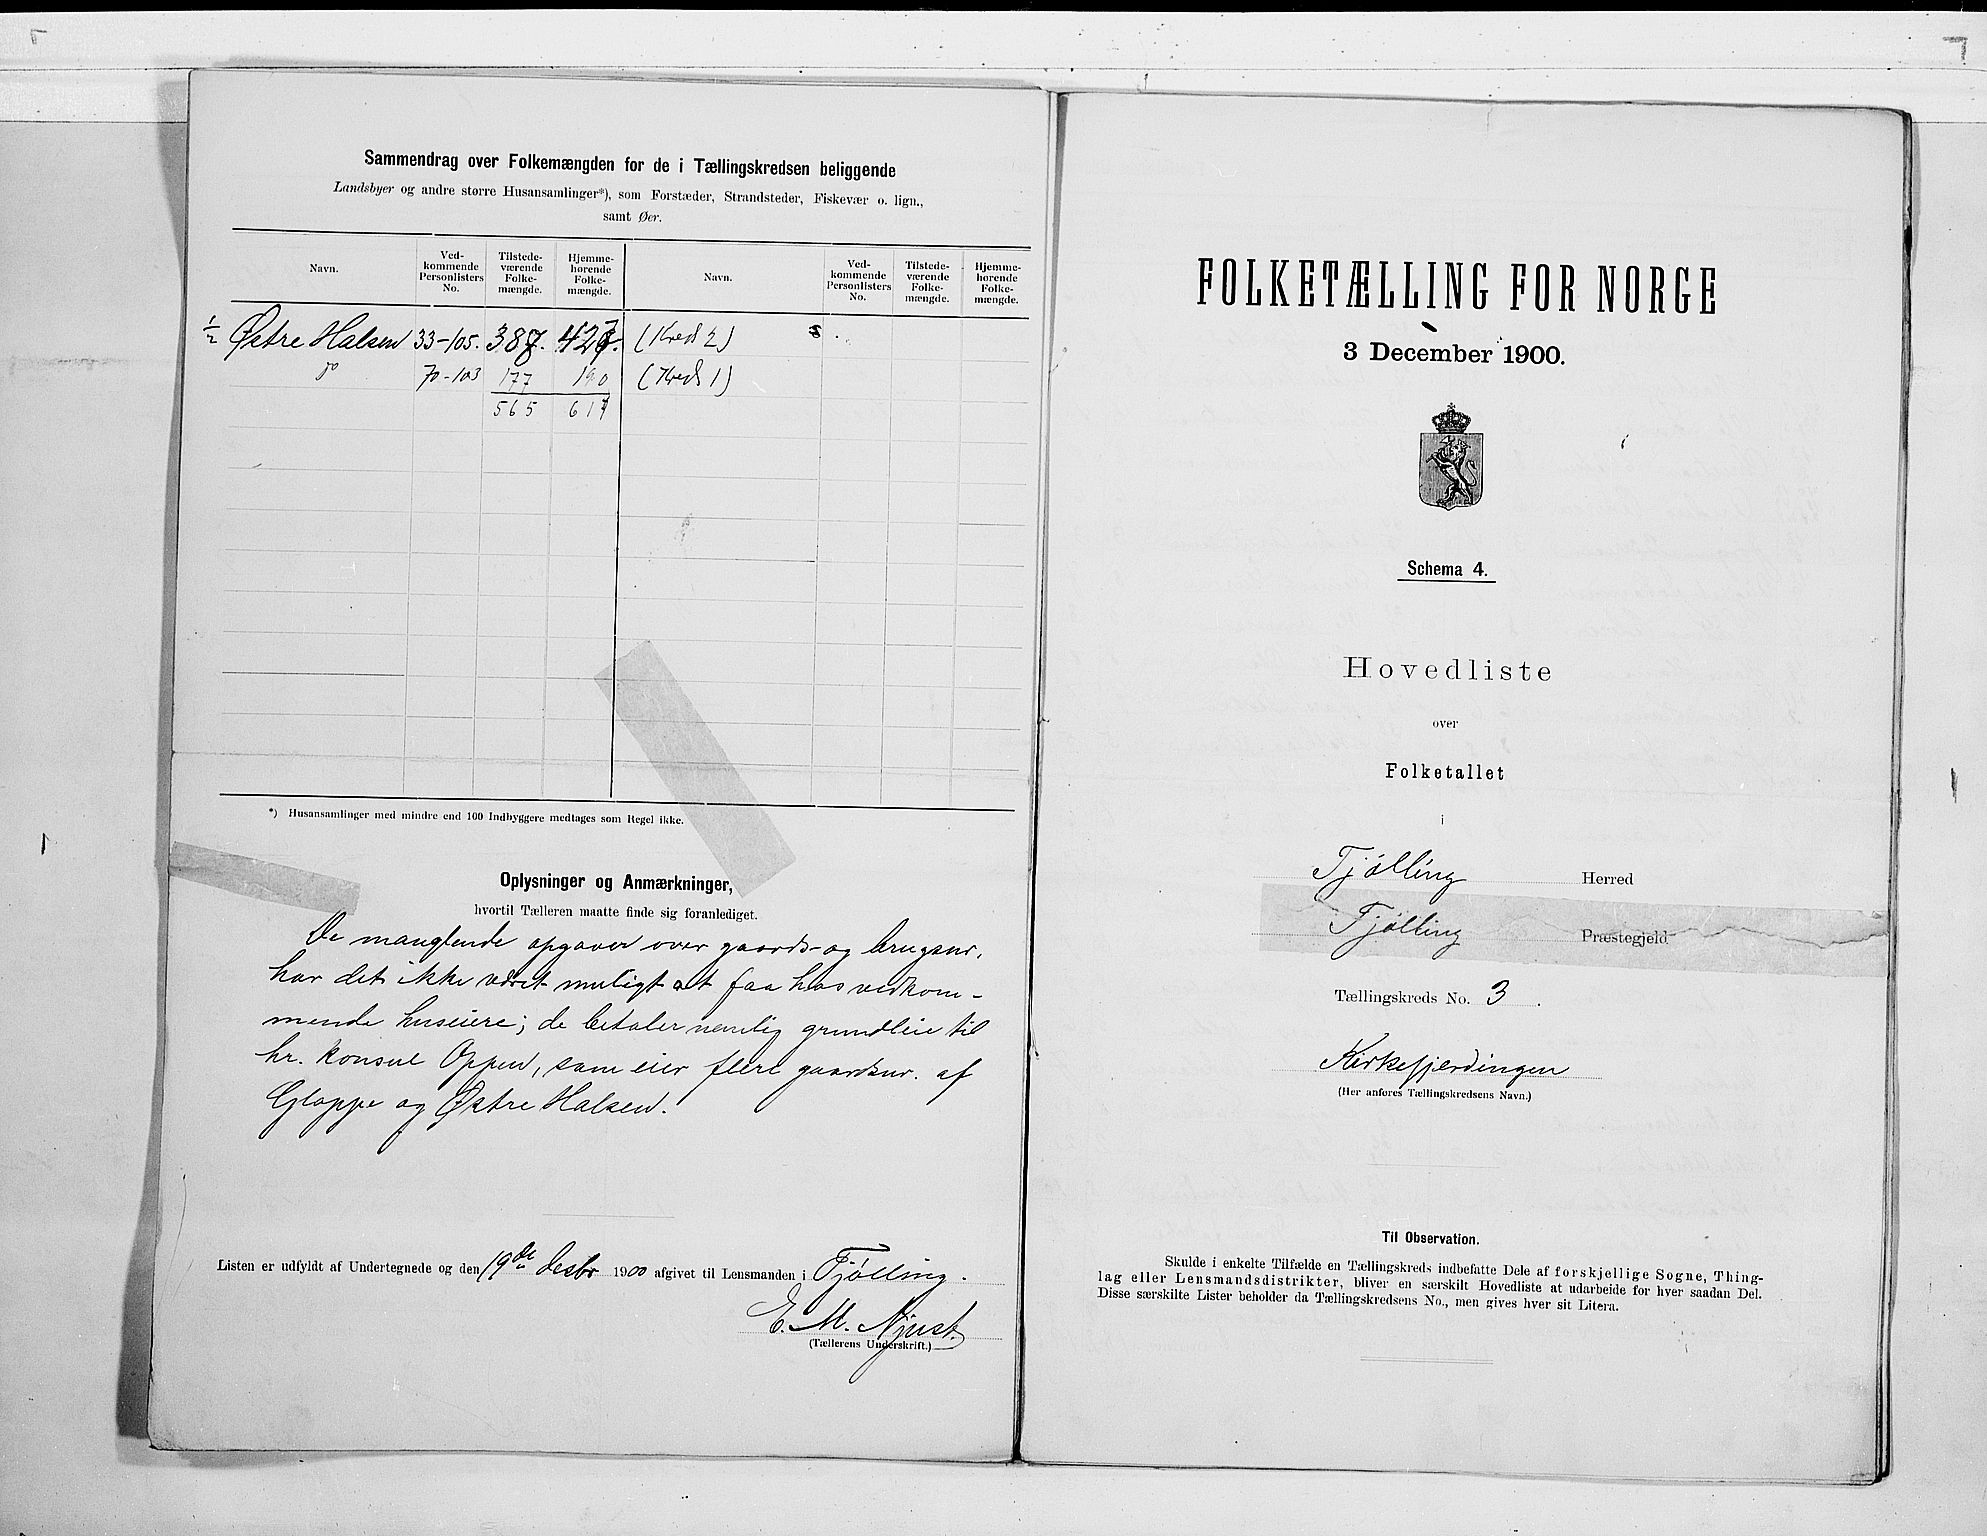 Sammendrag over Folkemængden for de i Tællingskredsen beliggende
Landsbyer og andre større Husansamlinger*), som Forstæder, Strandsteder, Fiskevær o. lign.,
samt Øer.
Navn. Ved-kommende Personlisters No. Tilstede-værende Folke-mængde. Hjemme-hørende Folke-mængde. Navn. Ved-kommende Personlisters No. Tilstede-værende Folke-mængde. Hjemme-hørende Folke-mængde.
1/2 Østre Halsen 33-105. 387. 427. (Kreds 2)
do 70-103 177 190 (Kreds 1)
565 617
*) Husansamlinger med mindre end 100 Indbyggere medtages som Regel ikke.
Oplysninger og Anmærkninger,
hvortil Tælleren maatte finde sig foranlediget.
De manglende opgaver over gaards- og brugsnr.
har det ikke været muligt at faa hos vedkom-
mende huseiere; de betaler nemlig grundleie til
hr. konsul Oppen, som eier flere gaardsnr. af
Gloppe og Østre Halsen.
Listen er udfyldt af Undertegnede og den 19de desbr 1900 afgivet til Lensmanden i Tjølling.
E. M. Njust
(Tællerens Underskrift.)
FOLKETÆLLING FOR NORGE
3 December 1900.
Schema 4.
Hovedliste
over
Folketallet
i
Tjølling Herred
Tjølling Præstegjeld
Tællingskreds No. 3.
Kirkefjerdingen
(Her anføres Tællingskredsens Navn.)
Til Observation.
Skulde i enkelte Tilfælde en Tællingskreds indbefatte Dele af forskjellige Sogne, Thing-
lag eller Lensmandsdistrikter, bliver en særskilt Hovedliste at udarbeide for hver saadan Del.
Disse særskilte Lister beholder da Tællingskredsens No., men gives hver sit Litera.